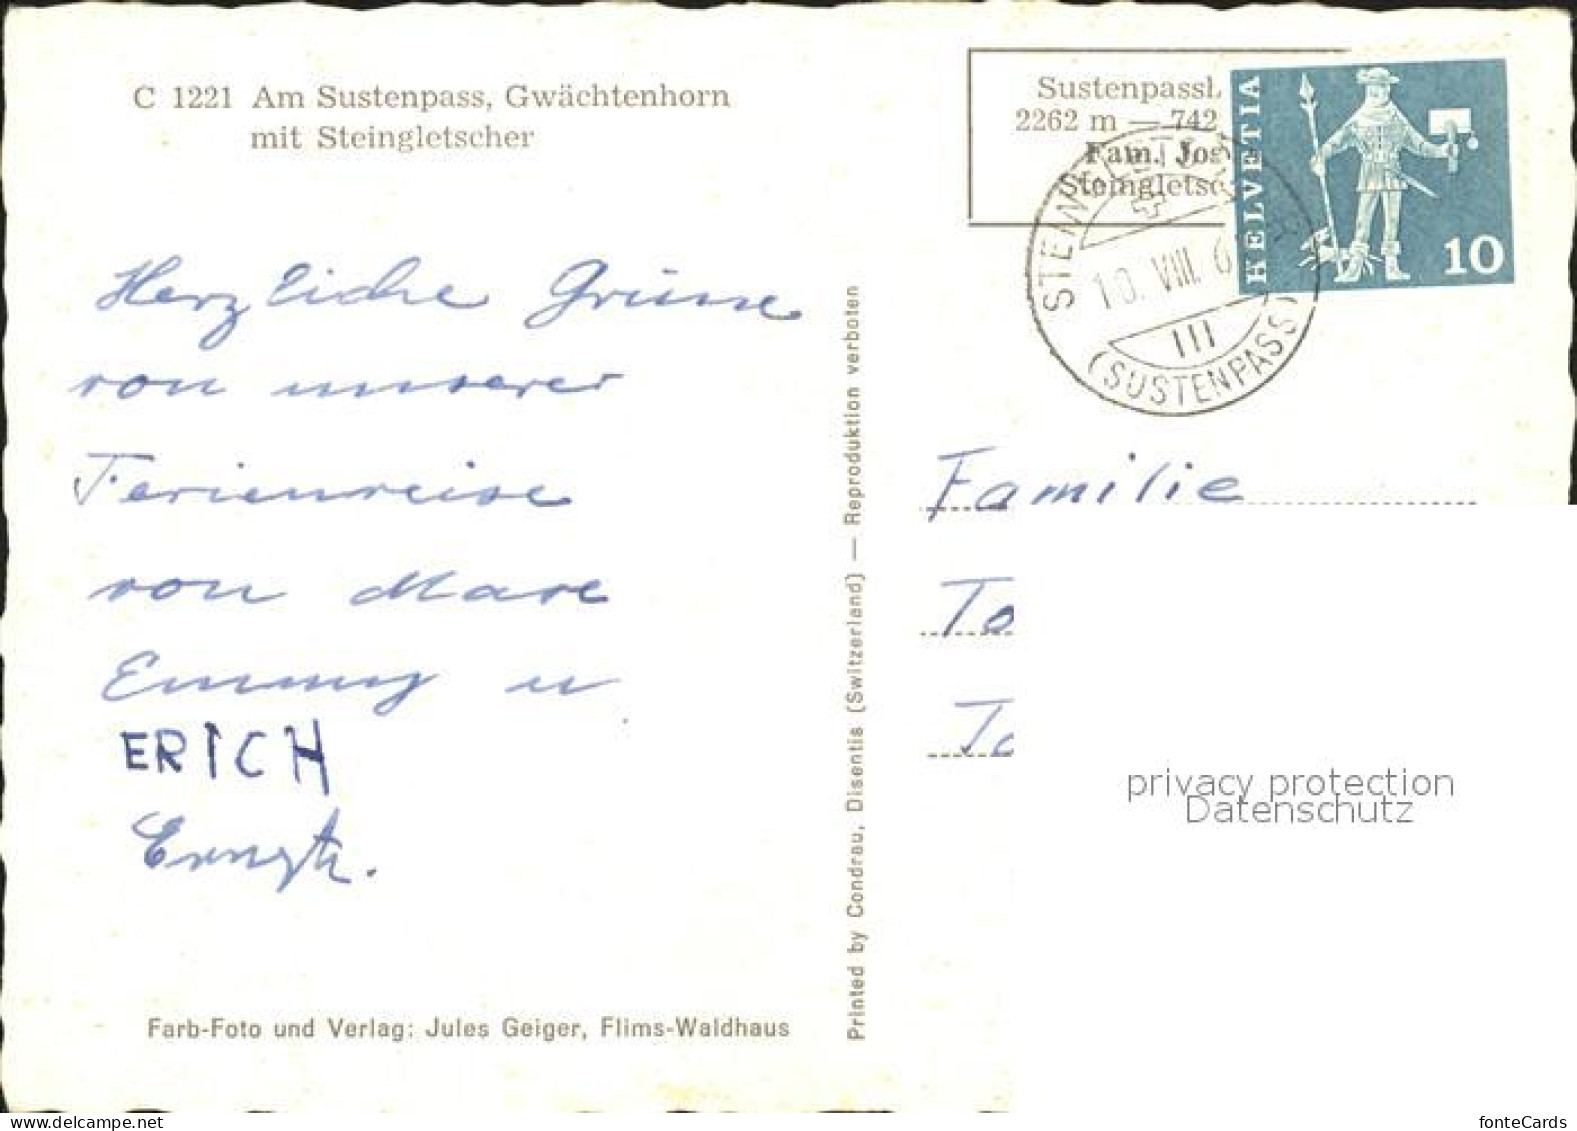 C 1221 Am Sustenpass, Gwächtenhorn
mit Steingletscher
Sustenpassh
2262 m — 742
Fam. Jos
Steingletsc
HELVETIA
10
10. VIII. 6
III
(SUSTENPASS)
Herzliche Grüsse
von unserer
Ferienreise
von
Emmy u
ERICH
Familie
To
To
Printed by Condrau, Disentis (Switzerland) — Reproduktion verboten
privacy protection
Datenschutz
Farb-Foto und Verlag: Jules Geiger, Flims-Waldhaus
delcampe.net
fonteCards